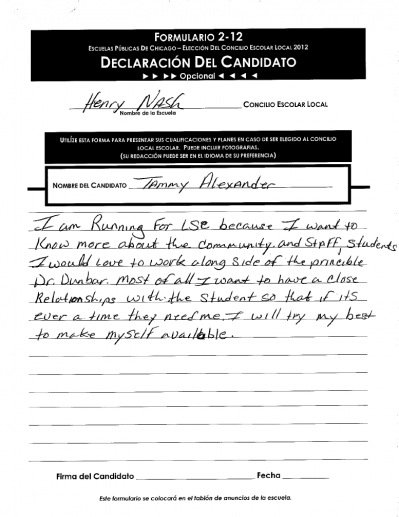 FORMULARIO 2-12
ESCUELAS PÚBLICAS DE CHICAGO – ELECCIÓN DEL CONCILIO ESCOLAR LOCAL 2012
DECLARACIÓN DEL CANDIDATO
► ► ►► Opcional ◄ ◄ ◄ ◄
Henry Nash CONCILIO ESCOLAR LOCAL
Nombre de la Escuela
UTILIZE ESTA FORMA PARA PRESENTAR SUS CUALIFICACIONES Y PLANES EN CASO DE SER ELEGIDO AL CONCILIO
LOCAL ESCOLAR. PUEDE INCLUIR FOTOGRAFIAS.
(SU REDACCIÓN PUEDE SER EN EL IDIOMA DE SU PREFERENCIA)
NOMBRE DEL CANDIDATO Tammy Alexander
I am Running For LSC because I want to
Know more about the community, and Staff, Students
I would Love to work along side of the principle
Dr. Dunbar. Most of all I want to have a Close
Relationships with the Student so that if its
ever a time they need me, I will try my best
to make myself available.
Firma del Candidato Fecha
Este formulario se colocará en el tablón de anuncios de la escuela.